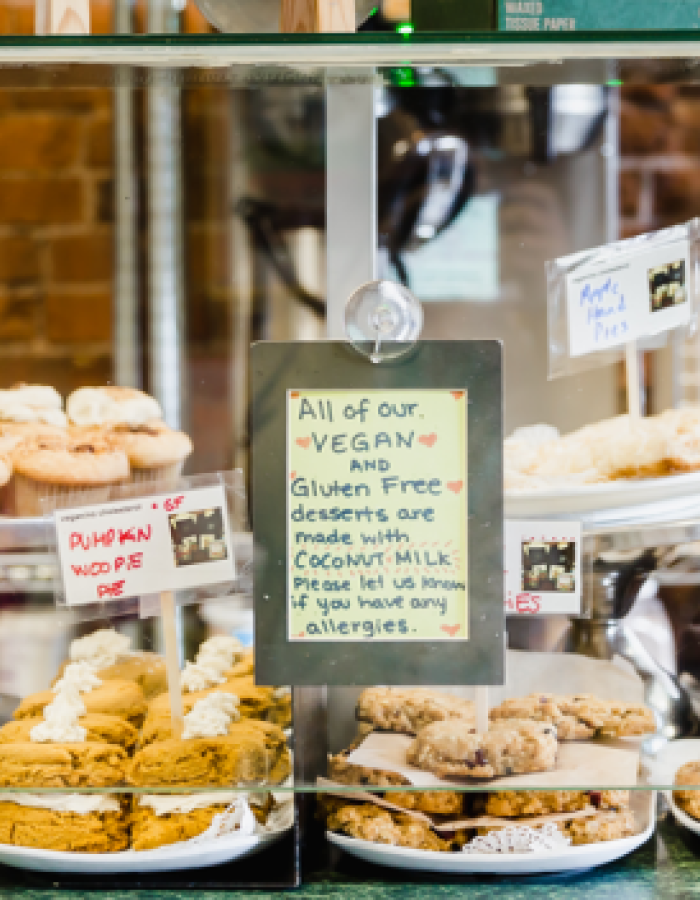 WAXED
TISSUE PAPER
Apple
Hand
Pies
All of our
VEGAN
AND
Gluten Free
desserts are
made with
COCONUT MILK
Please let us know
if you have any
allergies.
• GF
PUMPKIN
WOOPIE
PIE
IES